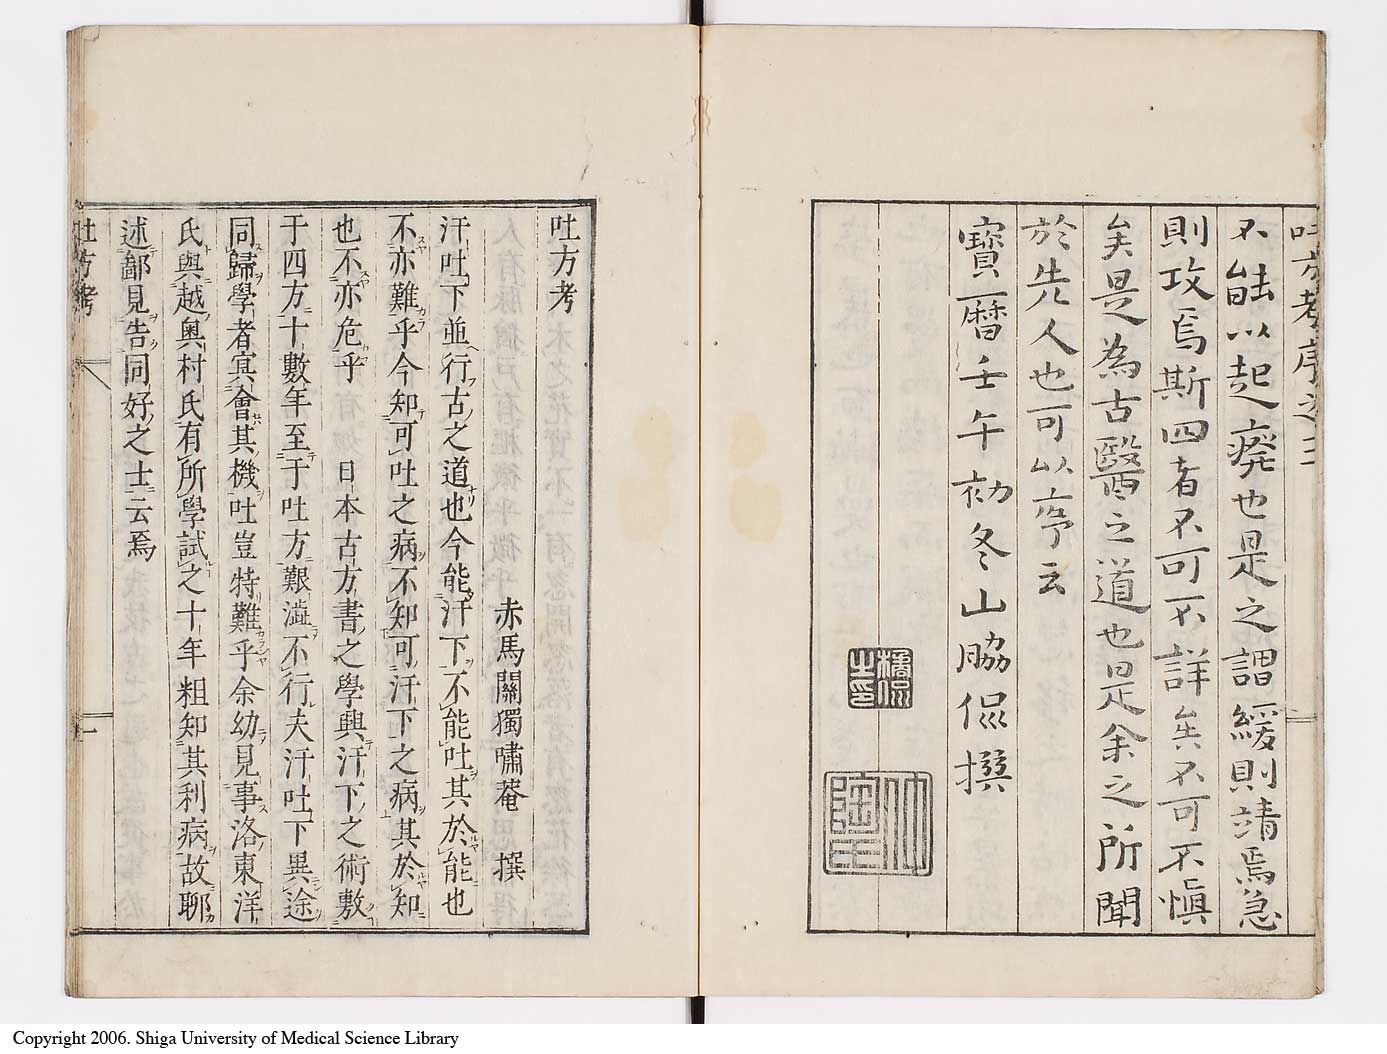 吐方考序
不能以起癈也是之謂緩則靖焉急
則攻焉斯四者不可不詳矣不可不愼
矣是為古醫之道也是余之所聞
於先人也可以序云
寶曆壬午初冬山脇侃撰
橘侃之印
吐方考
赤馬關獨嘯菴 撰
汗吐下並行古之道也今能汗下不能吐其於能也
不亦難乎今知可吐之病不知可汗下之病其於知
也不亦危乎 日本古方書之學興汗下之術敷
于四方十數年至于吐方艱澁不行夫汗吐下異途
同歸學者冥會其機吐豈特難乎余幼見事洛東洋
氏與越奥村氏有所學試之十年粗知其利病故聊
述鄙見告同好之士云焉
吐方考 一
Copyright 2006. Shiga University of Medical Science Library